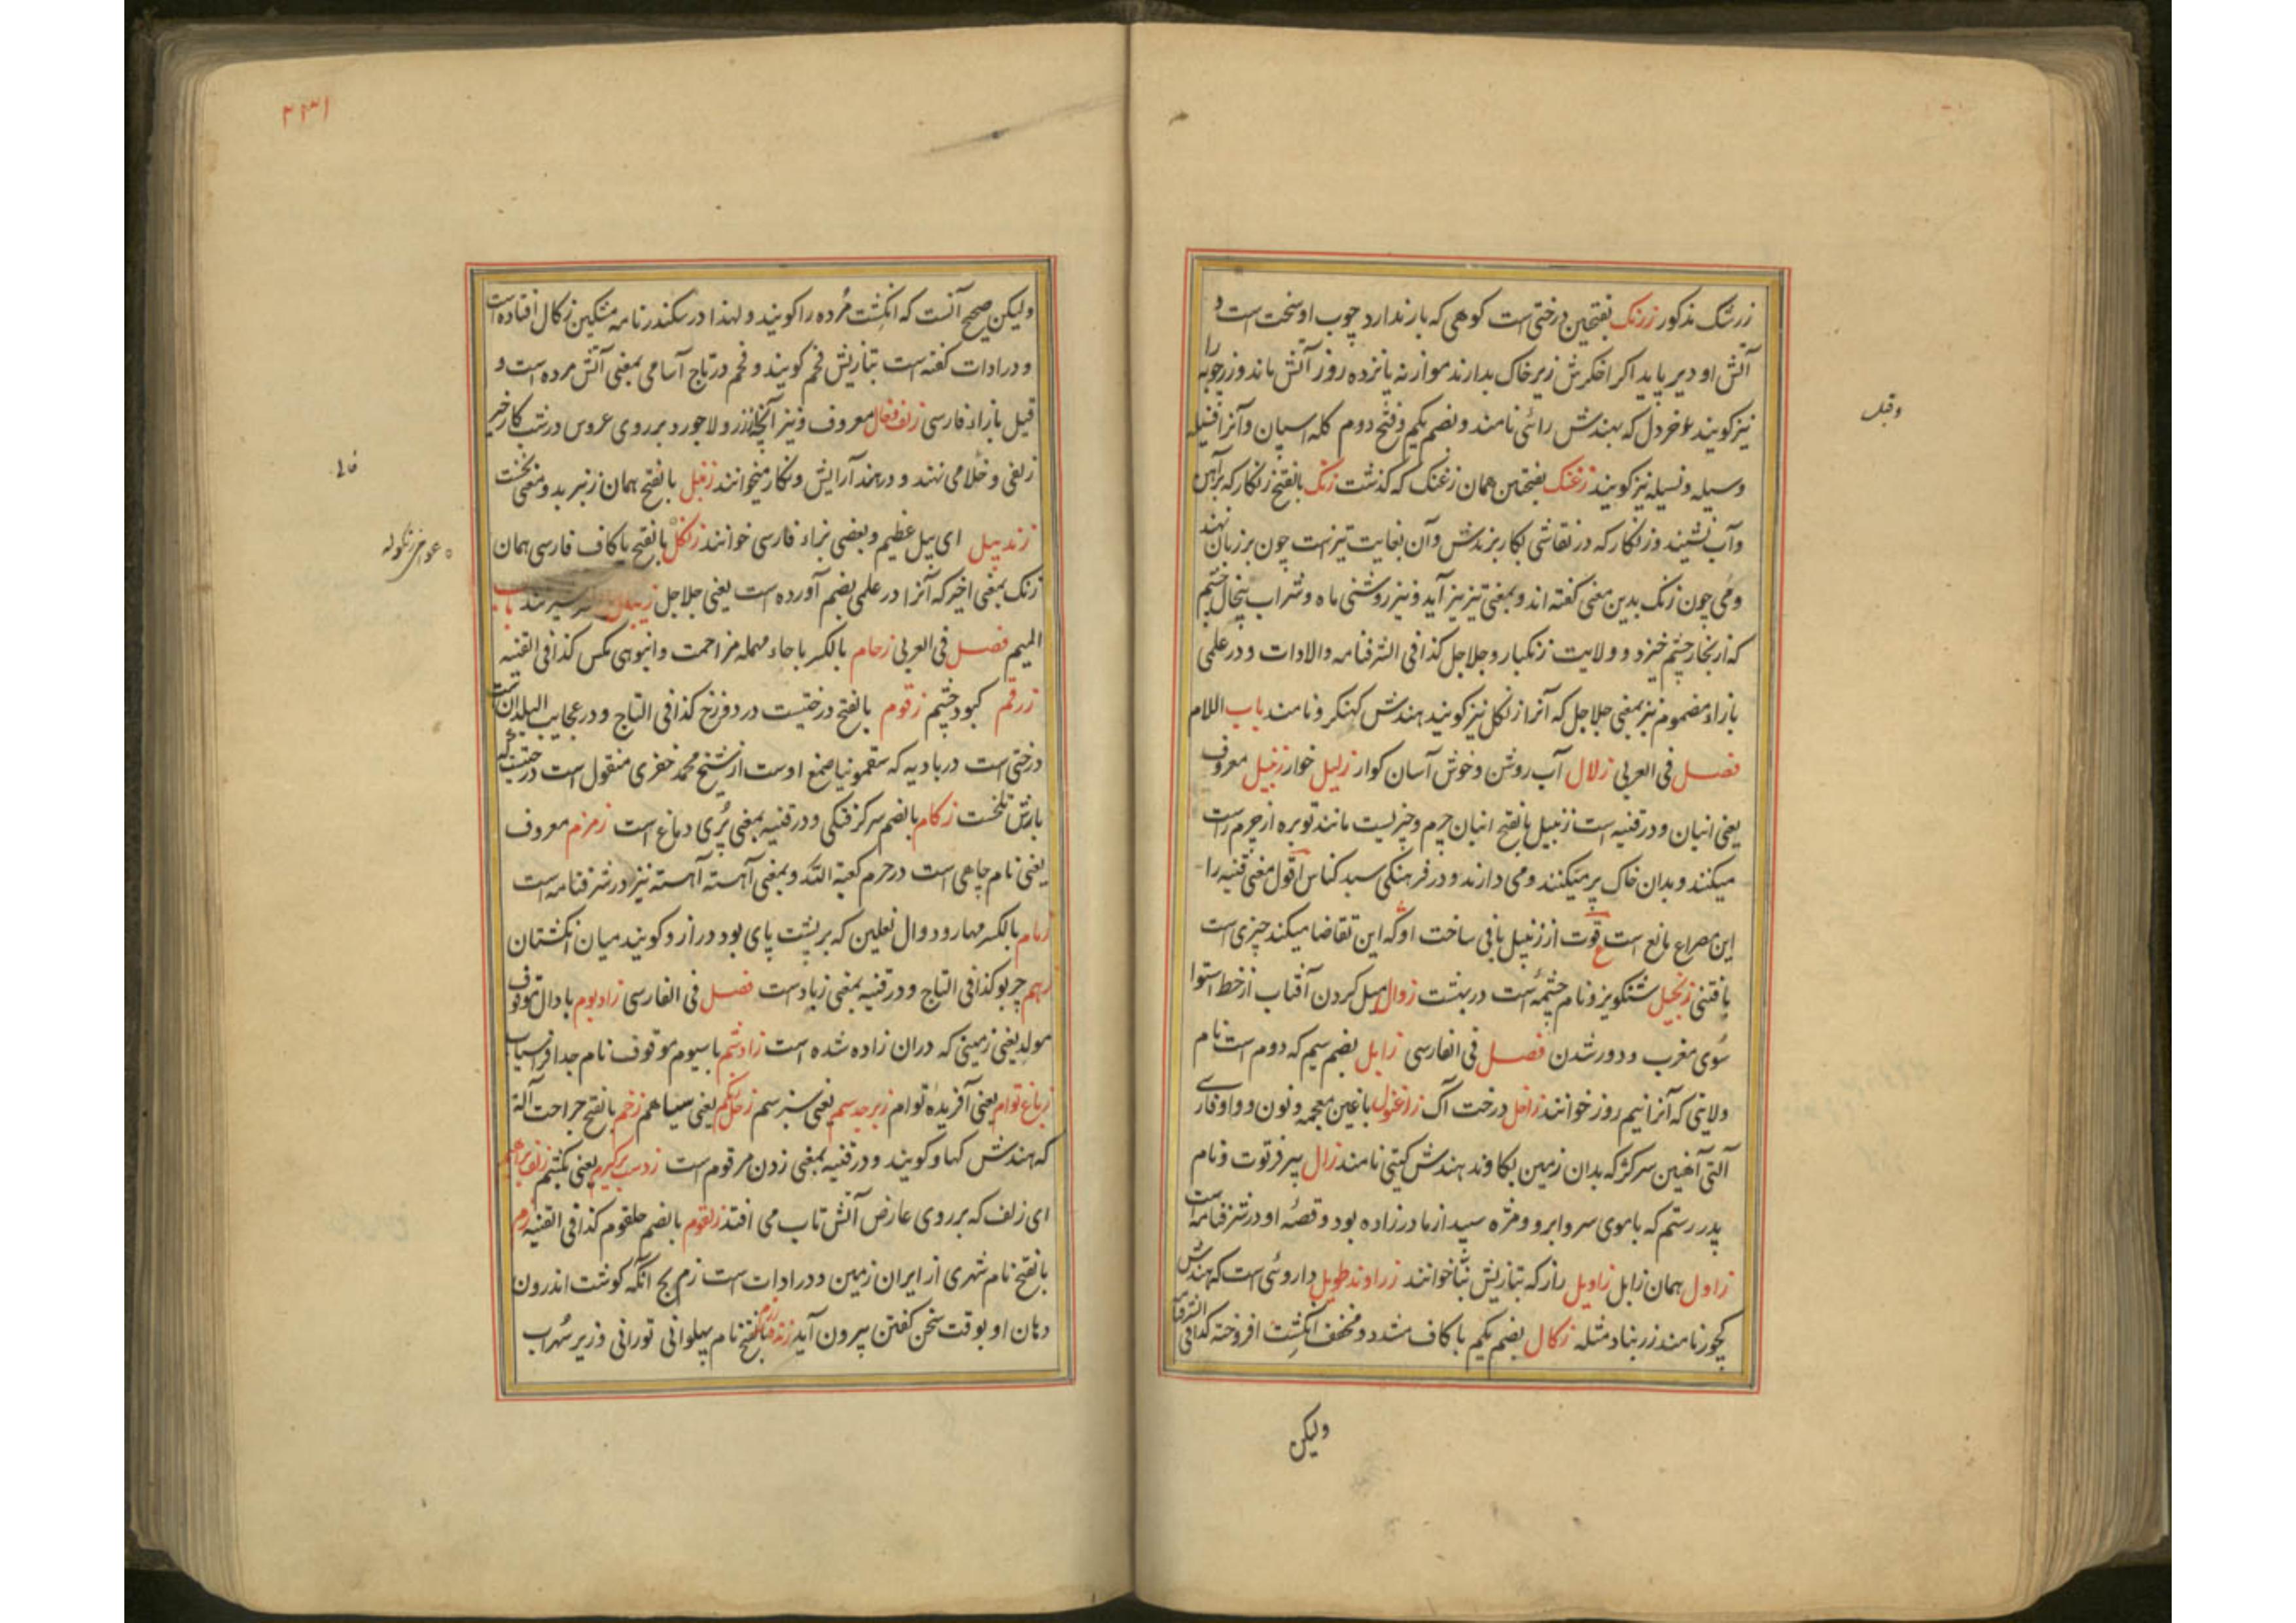 زرشک مذکور زرنک بفتحین درختی است کوهی که بار ندارد چوب او سخت است و
آتش او دیر پاید اکر اخکرش زیر خاک بدارند موازنه پانزده روز آتش ماند وزرچوبه را
نیز کویند و خردل که بهندش رائی نامند وبضم یکم وفتح دوم کله اسپان وآنرا فسیله
وسیله و نسیله نیز کویند زغنک بفتحتین همان زغنک که کذشت زنک بالفتح زنکار که بر آهن
وآب نشیند وزنکار که در نقاشی بکار برندش وآن بغایت تیز است چون بر زبان نهند
ومی چون زنک بدین معنی کفته اند وبمعنی تیز نیز آید ونیز روشنی ماه وشراب چشم
که از بخار چشم خیزد وولایت زنکبار وجلاجل کذا فی الشرفنامه والادات ودر علمی
بازاء مضموم نیز بمعنی جلاجل که آنرا زنکل نیز کویند هندش کهنکرو نامند باب اللام
فصل فی العربی زلال آب روشن وخوش آسان کوار زلیل خوار زنبیل معروف
یعنی انبان ودر قنیه است زنبیل بالفتح انبان چرم وچیزیست مانند توبره از چرم راست
میکنند وبدان خاک پر میکنند ومی دارند ودر فرهنکی سبد کناس اقول معنی قنیه را
این مصراع مانع است ع قوت از زنبیل بافی ساخت او که این تقاضا میکند چیزی است
بافتنی زنجبیل شنکویز ونام چشمه است در بهشت زوال میل کردن آفتاب از خط استوا
سوی مغرب ودور شدن فصل فی الفارسی زابل بضم سیم که دوم است نام
ولایتی که آنرا نیم روز خوانند زاخل درخت آک زاغنول باغین معجمه ونون وواو فارسی
آلتی آهنین سرکژ که بدان زمین بکاوند هندش کینتی نامند زال پیر فرتوت ونام
پدر رستم که با موی سر وابرو ومژه سپید از مادر زاده بود وقصه او در شرفنامه است
زاول همان زابل زاویل راز که بتازیش بنا خوانند زراوند طویل داروئی است که هندش
کچور نامند زرنباد مثله زکال بضم یکم با کاف مشدد ومخفف انکشت افروخته کذا فی الشرفنامه
ولیکن
وقیل
۲۳۱
ولیکن صحیح آنست که انکشت مرده را کویند ولهذا در سکندرنامه مشکین زکال افتاده است
ودر ادات کفته است بتازیش فحم کویند وفحم در تاج آسامی بمعنی آتش مرده است و
قیل بازاء فارسی زلف فخال معروف ونیز آنچه از زر ولاجورد بر روی عروس در شب کار خیر
زلفی وخالی می نهند ودر هند آرایش ونکار میخوانند زنبل بالفتح همان زنبر بدو معنی نخست
زندبیل ای پیل عظیم وبعضی بزاء فارسی خوانند زنکل بالفتح با کاف فارسی همان
زنک بمعنی اخیر که آنرا در علمی بضم آورده است یعنی جلاجل باب
المیم فصل فی العربی زحام بالکسر با حاء مهمله مزاحمت وانبوهی کس کذا فی القنیه
زرقم کبود چشم زقوم بالفتح درختیست در دوزخ کذا فی التاج ودر عجایب البلدان است
درختی است در بادیه که سقمونیا صمغ اوست از شیخ محمد خضری منقول است درختیست که
بارش تلخست زکام بالضم سر کرفتکی ودر قنیه بمعنی پری دماغ است زمزم معروف
یعنی نام چاهی است در حرم کعبة الله وبمعنی آهسته آهسته نیز در شرفنامه است
زمام بالکسر مهار ودوال نعلین که بر پشت پای بود دراز وکویند میان انکشتان
زهم چربو کذا فی التاج ودر قنیه بمعنی زباد است فصل فی الفارسی زادبوم با دال موقوف
مولد یعنی زمینی که دران زاده شده است زادشم با سیوم موقوف نام جد افراسیاب
زباغ توام یعنی آفریده توام زبرجد سم یعنی سبز سم زحل یعنی سیاهم زخم بالفتح جراحت آلة
که هندش کهاو کویند ودر قنیه بمعنی زدن مرقوم است یعنی بکشیم
ای زلف که بر روی عارض آتش تاب می افتد زلقوم بالضم حلقوم کذا فی القنیه زم
بالفتح نام شهری از ایران زمین ودر ادات است زم بچ آنکه کوشت اندرون
دهان او بوقت سخن کفتن بیرون آید زنده رزم بالفتح نام پهلوانی تورانی وزیر سهراب